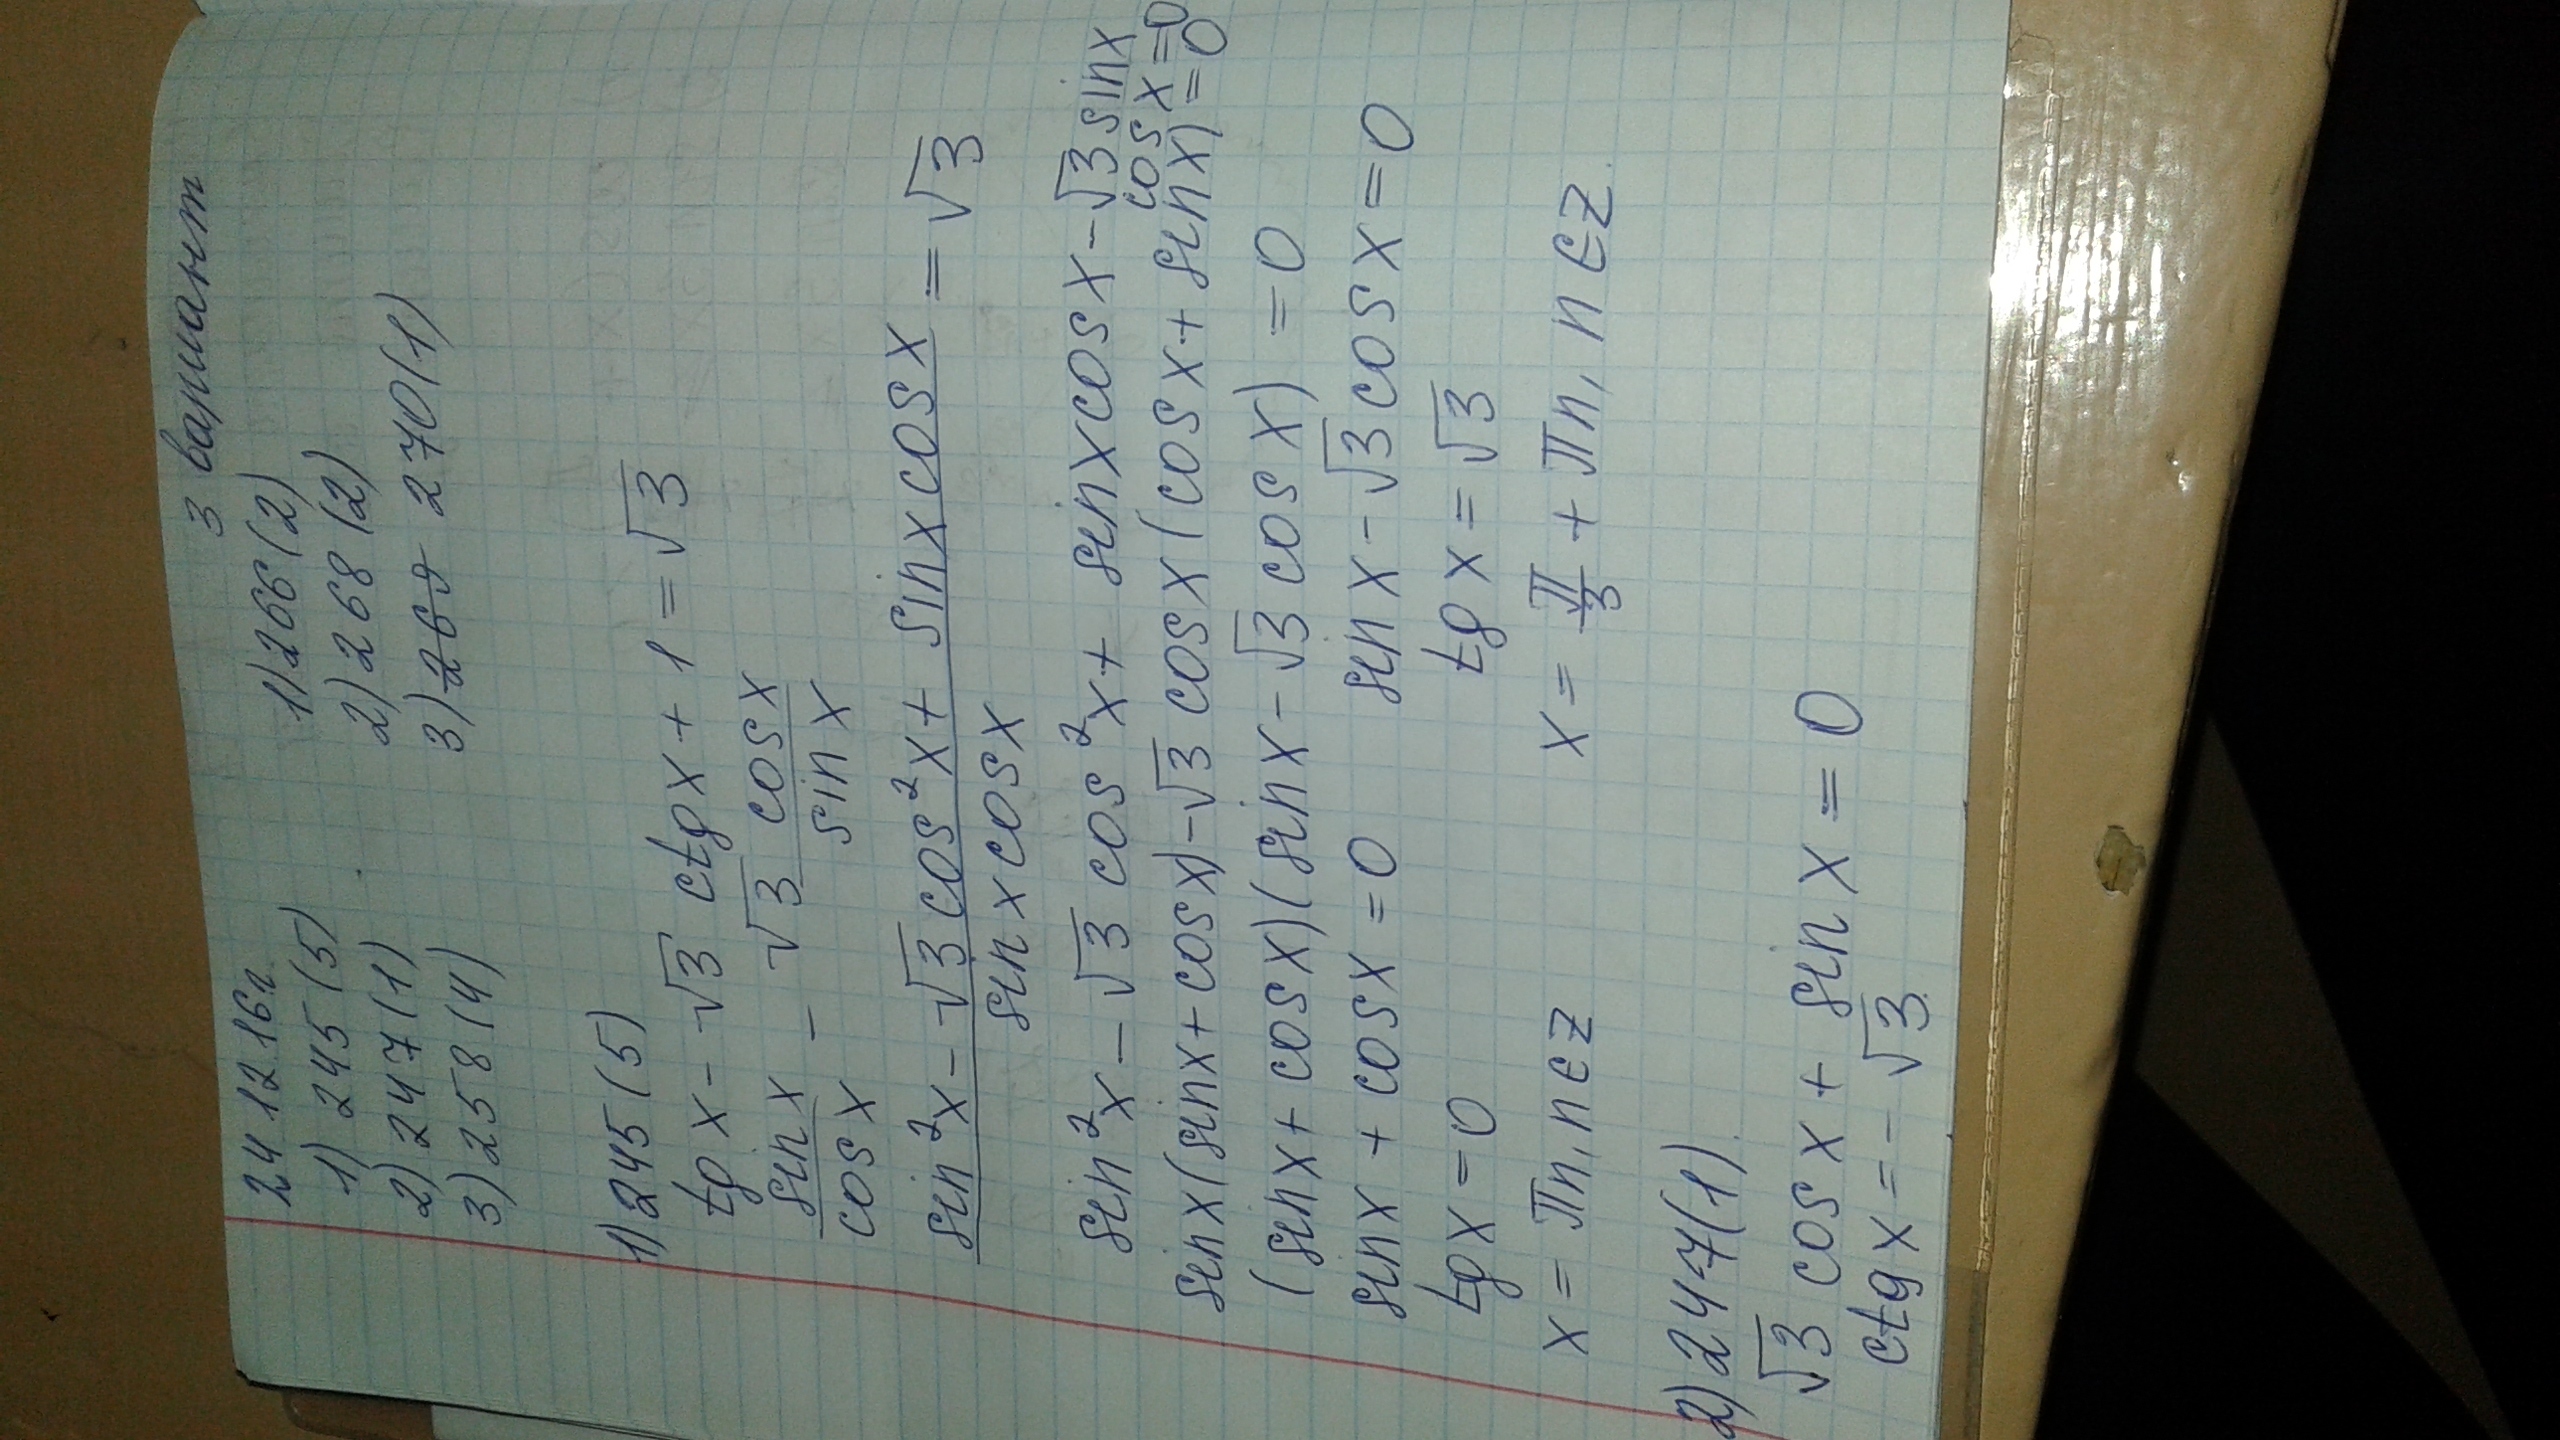 24 12 16г. 3 вариант
1) 245 (5) 1) 266 (2)
2) 247 (1) 2) 268 (2)
3) 258 (4) 3) 269 270 (1)
1) 245 (5)
tg x - √3 ctg x + 1 = √3
sin x / cos x - √3 cos x / sin x
sin²x - √3 cos²x + sin x cos x / sin x cos x = √3
sin²x - √3 cos²x + sin x cos x - √3 sin x cos x = 0
sin x (sin x + cos x) - √3 cos x (cos x + sin x) = 0
(sin x + cos x)(sin x - √3 cos x) = 0
sin x + cos x = 0 sin x - √3 cos x = 0
tg x = 0 tg x = √3
x = πn, n ∈ Z x = π/3 + πn, n ∈ Z.
2) 247 (1).
√3 cos x + sin x = 0
ctg x = - √3.